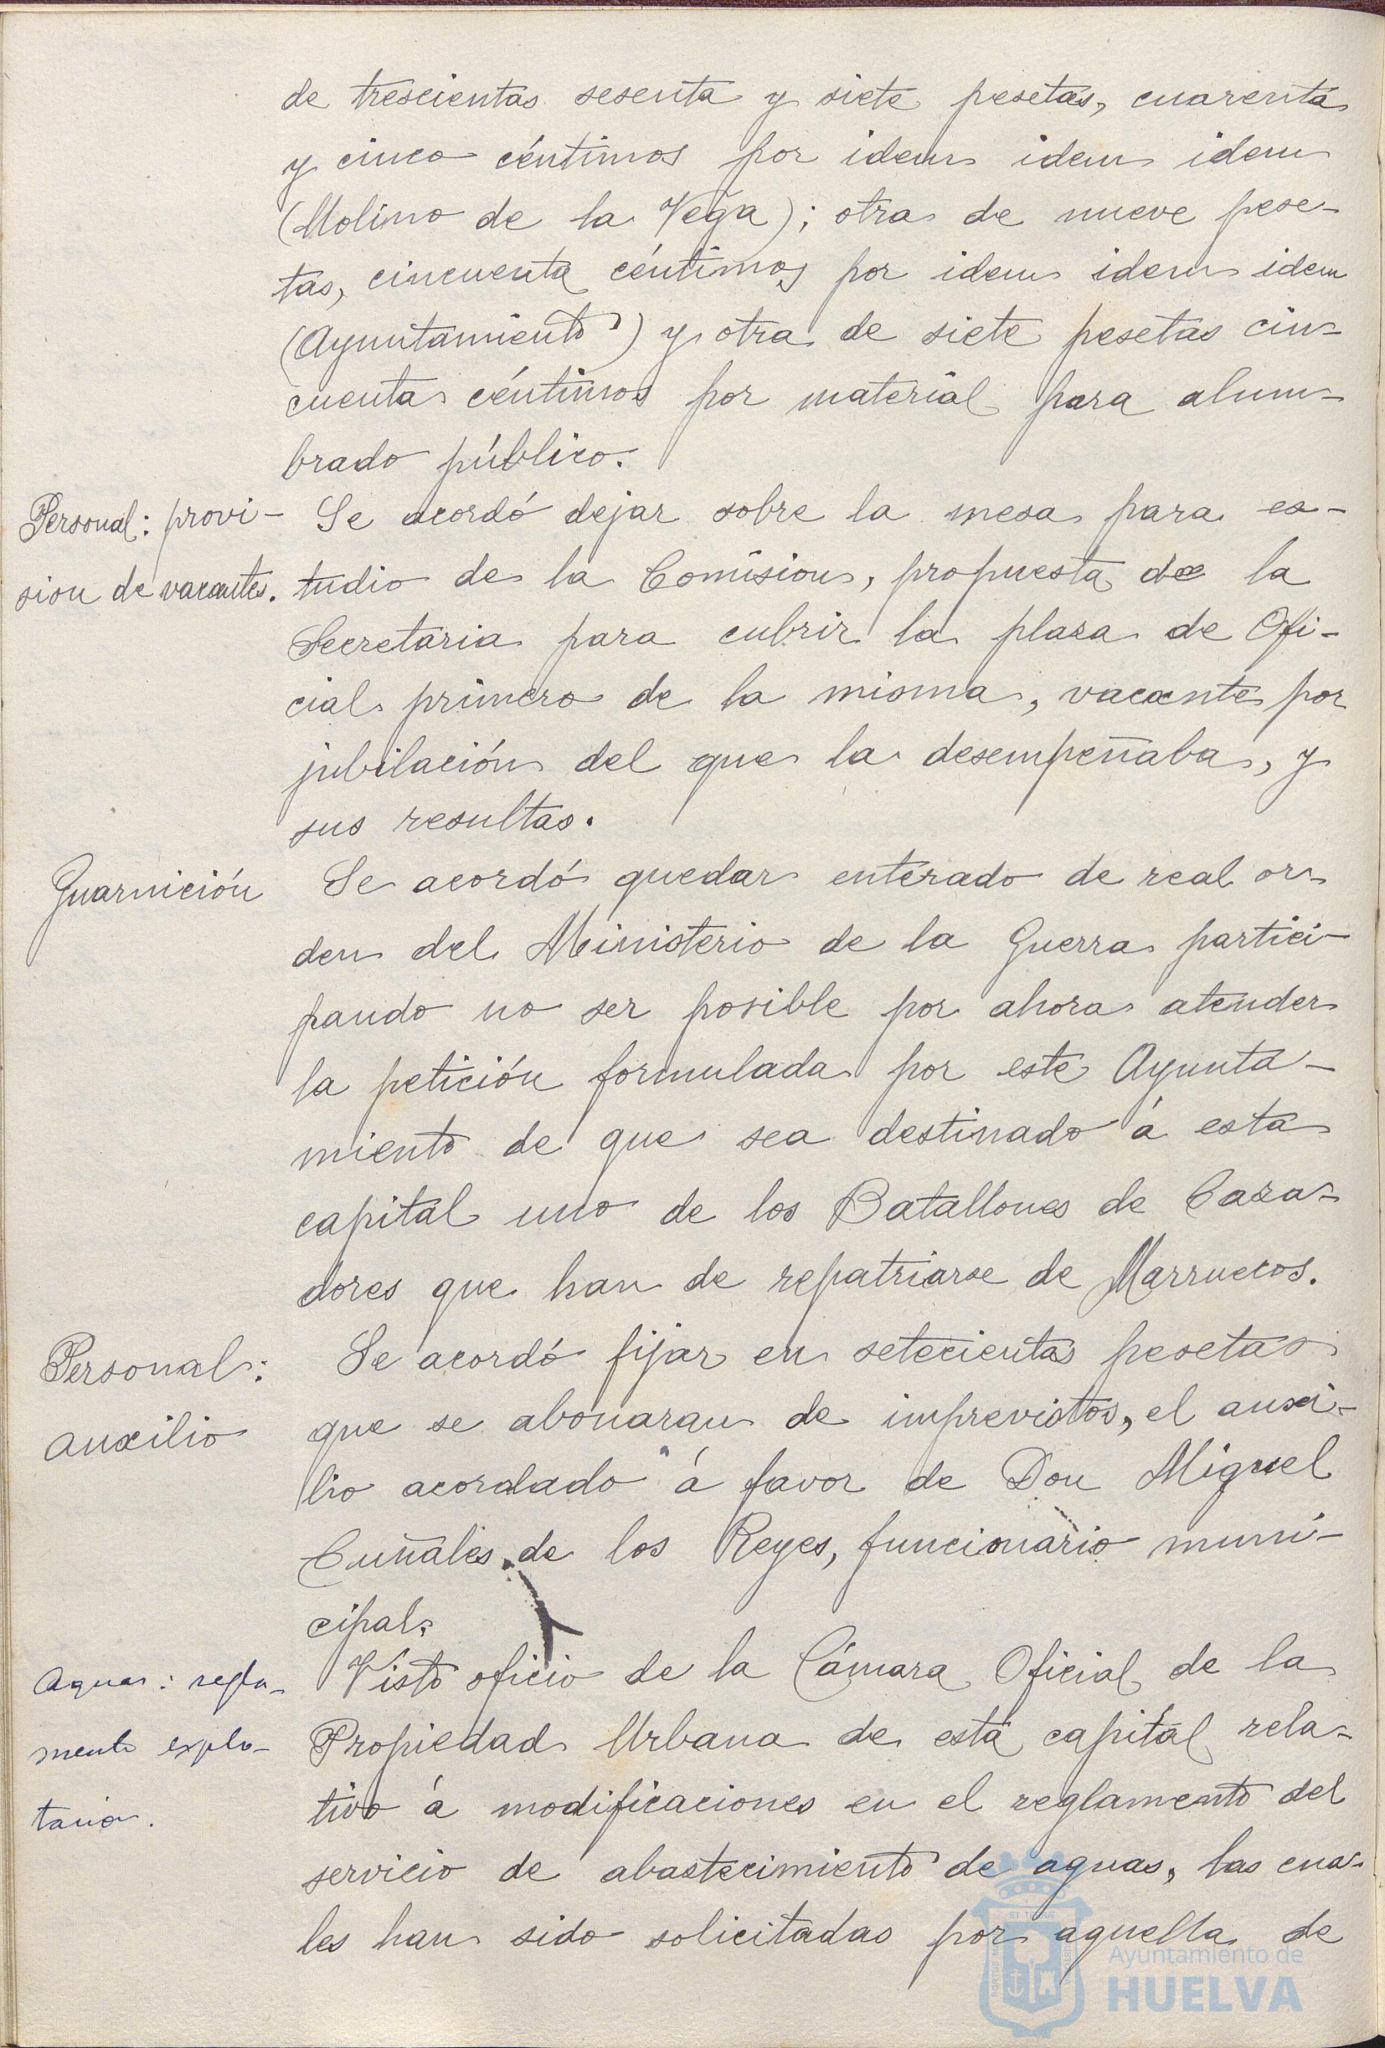 de trescientas sesenta y siete pesetas, cuarenta
y cinco céntimos por idem idem idem
(Molino de la Vega); otra de nueve pese-
tas, cincuenta céntimos por idem idem idem
(Ayuntamiento) y otra de siete pesetas cin-
cuenta céntimos por material para alum-
brado público.
Personal: provi-
sion de vacantes.
Se acordó dejar sobre la mesa para es-
tudio de la Comision, propuesta de la
Secretaria para cubrir la plaza de Ofi-
cial primero de la misma, vacante por
jubilación del que la desempeñaba, y
sus resultas.
Guarnición
Se acordó quedar enterado de real or-
den del Ministerio de la Guerra partici-
pando no ser posible por ahora atender
la petición formulada por este Ayunta-
miento de que sea destinado á esta
capital uno de los Batallones de Caza-
dores que han de repatriarse de Marruecos.
Personal:
auxilio
Se acordó fijar en setecientas pesetas
que se abonaran de imprevistos, el auxi-
lio acordado á favor de Don Miguel
Cuñales de los Reyes, funcionario muni-
cipal.
Aguas: regla-
mento explo-
tación.
Visto oficio de la Cámara Oficial de la
Propiedad Urbana de esta capital rela-
tivo á modificaciones en el reglamento del
servicio de abastecimiento de aguas, las cua-
les han sido solicitadas por aquella de
Ayuntamiento de
HUELVA